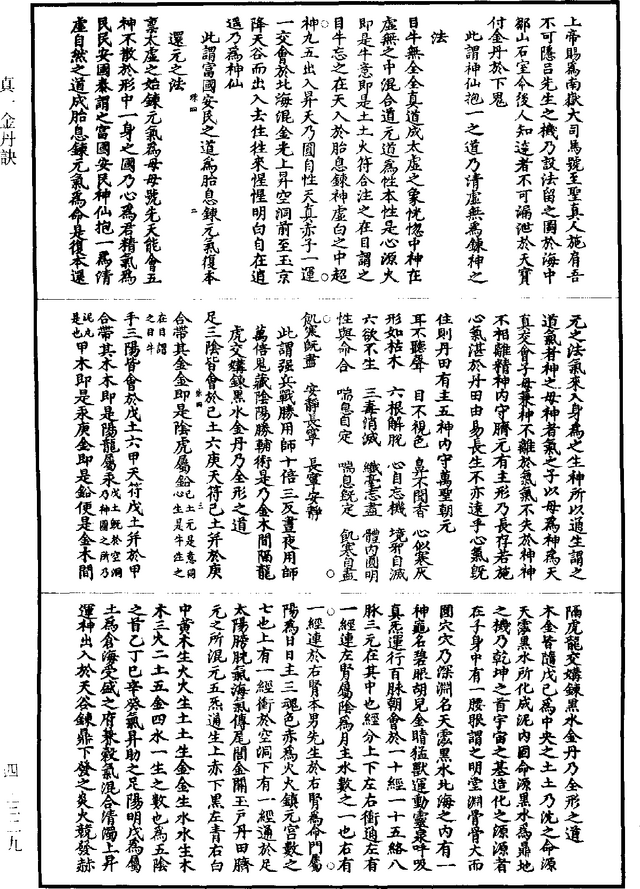 上帝賜爲南嶽大司馬號至聖真人施肩吾
不可隱呂先生之機乃設法留之圖於海中
都山石室令後人知達者不可漏泄於天寶
付金丹於下鬼
此謂神仙抱一之道乃清虛無爲鍊神之
法
目牛無全全真道成太虛之象恍惚中神在
虛無之中混合道元道爲性本性是心源火
即是牛意即是土土火符合注之在目謂之
目牛忘之在天入於胎息鍊神虛白之中超
神九五出入昇天乃圓自性天真赤子一運
一交會於北海混金光上昇空洞前至玉京
降天谷而出入去住往來惺惺明白自在逍
遥乃爲神仙
此謂富國安民之道爲胎息鍊元氣復本
還元之法
稟太虛之始鍊元氣爲母母號先天能會五
神不散於形中一身之國乃心爲君精氣爲
民民安國泰謂之富國安民神仙抱一爲清
虛自然之道成胎息鍊元氣爲命是復本還
元之法氣來入身爲之生神所以通生謂之
道氣者神之母神者氣之子以母爲神爲天
真交會子母兼神不離於氣氣不失於神神
不相離精神內守臍元有主形乃長存若施
心氣湛於丹田由易長生不亦遠乎心氣旣
住則丹田有主五神內守萬聖朝元
耳不聽聲 目不視色 鼻不聞香 心似寒灰
形如枯木 六根解脫 心自忘機 境邪自滅
六欲不生 三毒消滅 纖毫忘盡 體內圓明
性與命合 喘息自定 喘息旣定 飢寒自盡
飢寒旣盡 安靜長寧 長寧安靜
此謂强兵戰勝用師十倍三反晝夜用師
萬倍鬼藏陰陽勝輔術是乃金木間隔龍
虎交媾鍊黑水金丹乃全形之道
足三陰皆會於己土六庚天符己土幷於庚
合帶其金金即是陰虎屬鉛己土元是意同心生是牛在之在目謂之目牛
手三陽皆會於戊土六甲天符戊土幷於甲
合帶其木木即是陽龍屬汞戊土旣於空洞乃神圓之所乃泥丸是也
甲木即是汞庚金即是鉛便是金木間
隔虎龍交媾鍊黑水金丹乃全形之道
木金皆隨戊己爲中央之土土乃沈之命源
天露黑水所化成泥內固命源黑水爲鼎地
之機乃乾坤之首宇宙之基造化之源源者
在子身中有一腰眼謂之明堂淵骨骨大而
圓穴穴乃深淵名天露黑水北海之內有一
神龜名碧眼胡兒金睛猛獸運動靈泉呼吸
真炁運行百脉朝會於一十經一十五絡八
脉三元在其中也經分上下左右衝通左有
一經連左腎屬陰爲月主水數之一也右有
一經連於右腎本男先生於右腎爲命門屬
陽爲日日主三魂色赤爲火火鎮元宮數之
七也上有一經衝於空洞下有一經通於足
太陽膀胱氣海氣傳尾閭金關玉戶丹田臍
元之所混元五炁通生上赤下黑左青右白
中黄木生火火生土土生金金生水水生木
木三火二土五金四水一生之數也爲五陰
之首乙丁己辛癸氣昇助之足陽明戊爲屬
土爲倉海受盛之府兼穀氣混合清濁上昇
運神出入於天谷鍊鼎下發之炎火競發赫
真一金丹訣
四—三二九